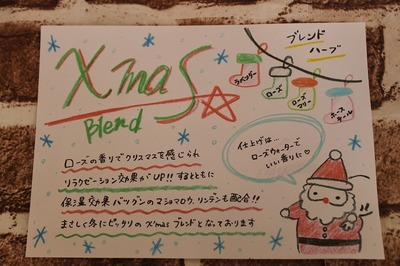 Xmas
Blend
ブレンド
ハーブ
ラベンダー
ローズ
ローズ
マリー
ホース
テール
仕上げは…
ローズウォーターで
いい香りに♡
ローズの香りでクリスマスを感じられ
リラクゼーション効果がUP!! するとともに
保湿効果バツグンのマシュマロウ、リンデンも配合!!
まさしく冬にピッタリのX'masブレンドとなております